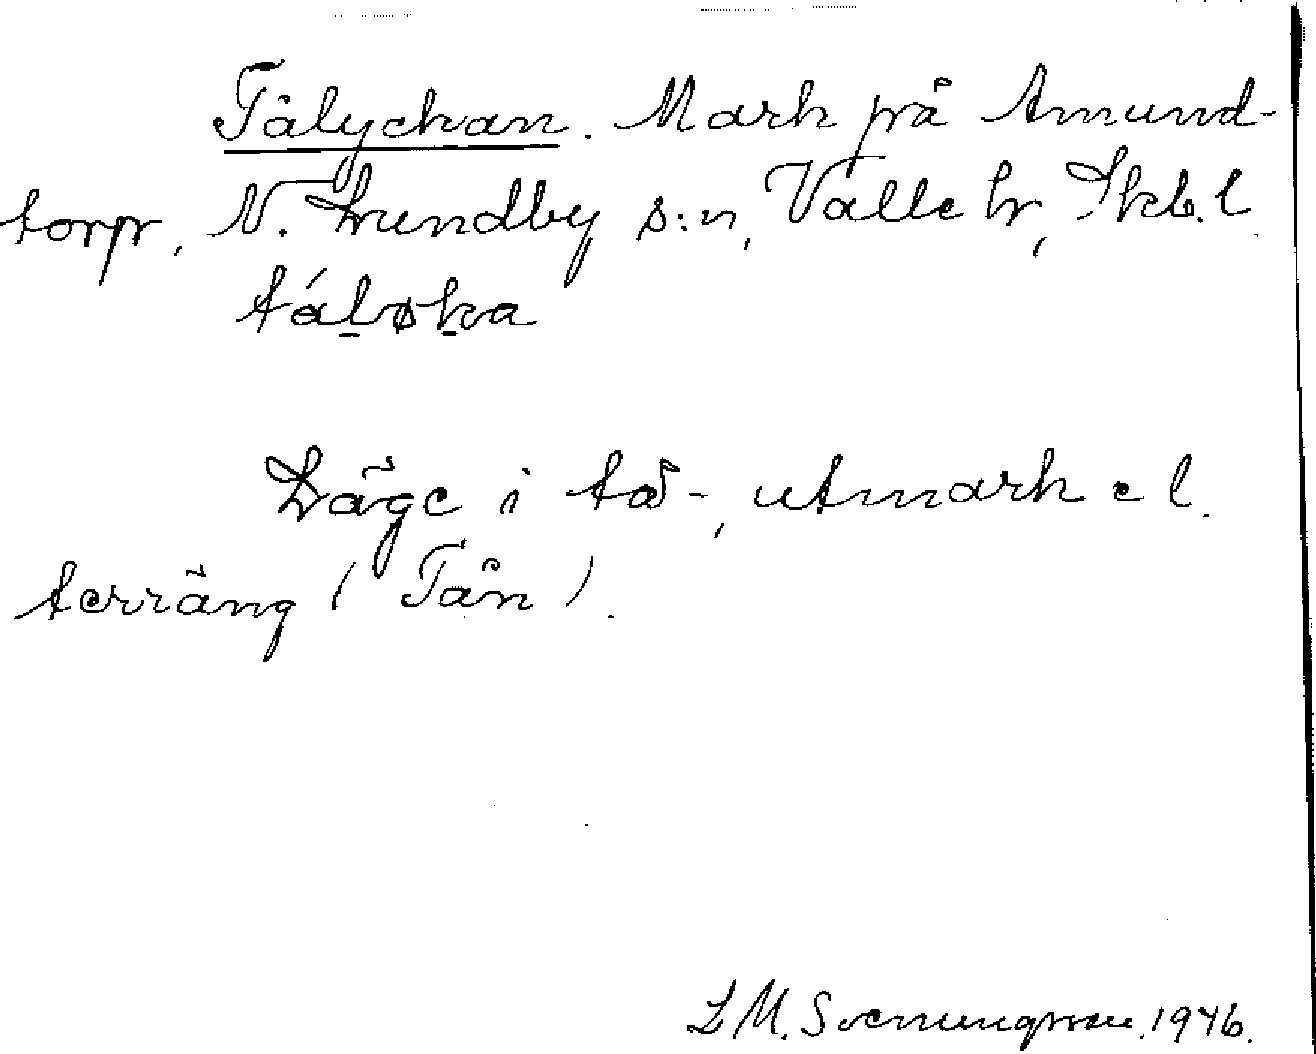 Tålyckan. Mark på Amund-
torp, N. Lundby s:n, Valle hr, Skb. l.
táløka
Läge i tå-, utmark el.
terräng (Tån).
L M. Svenungsson. 1946.